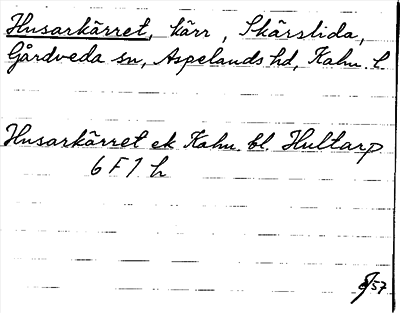 Husarkärret, kärr, Skärslida,
Gårdveda sn, Aspelands hd, Kalm. l.
Husarkärret ek Kalm. bl. Hultarp
6 F 1 h
57